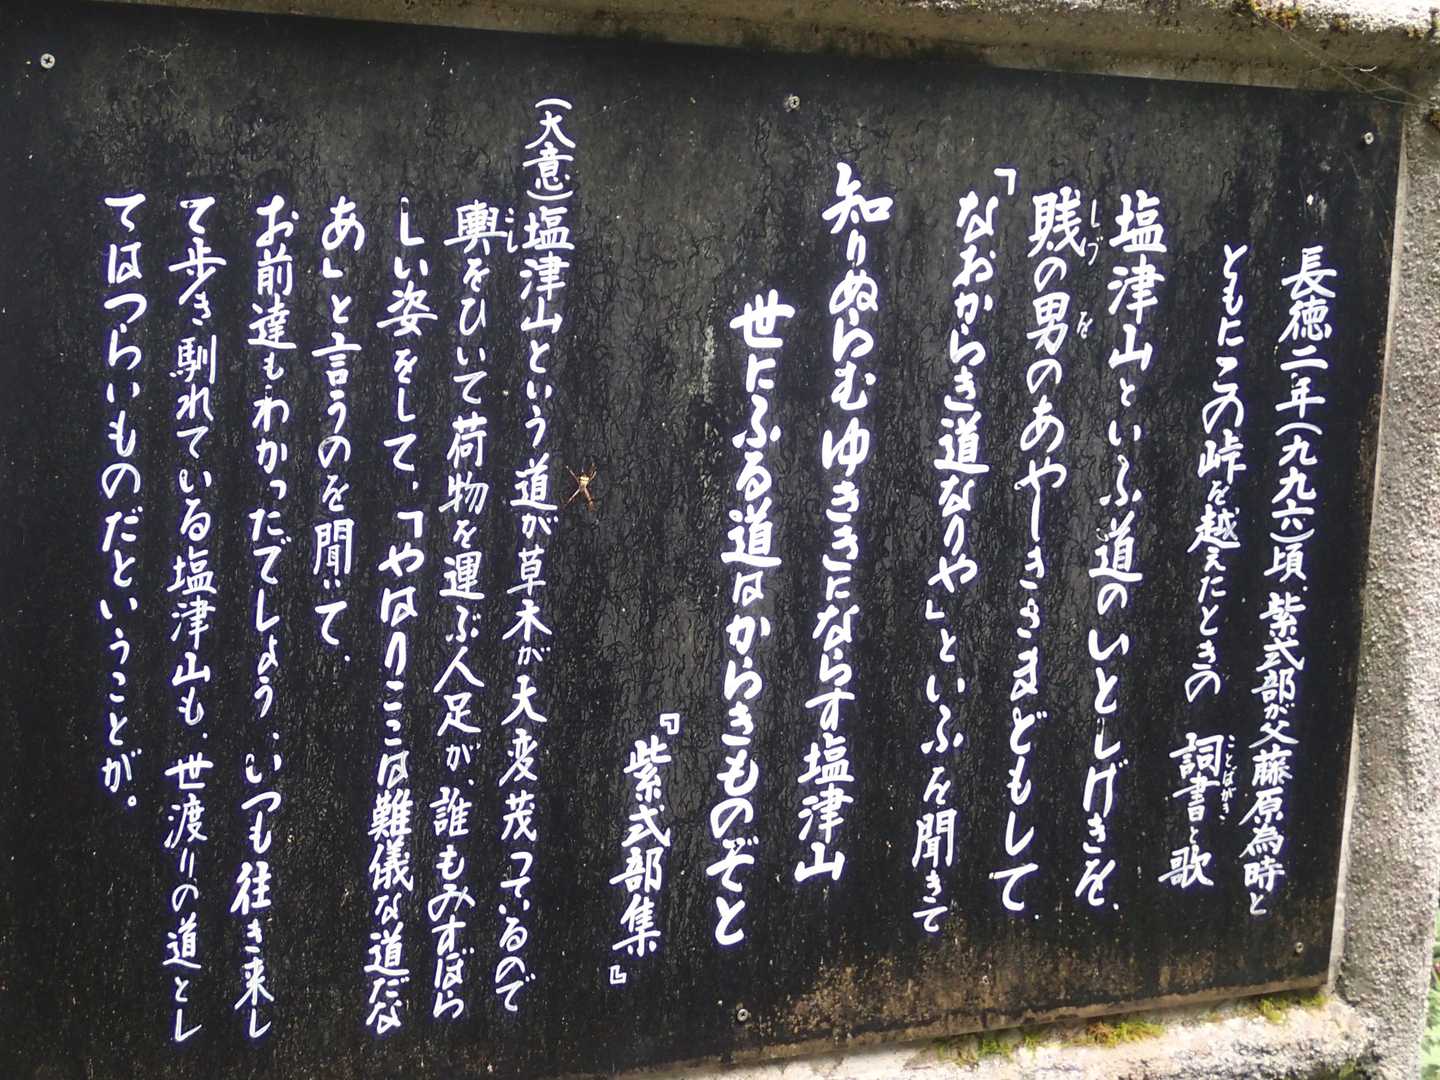 長徳二年(九九六)頃、紫式部が父藤原為時と
ともにこの峠を越えたときの 詞書と歌
ことばがき
塩津山といふ道のいとしげきを、
賎の男のあやしきさまどもして、
しづ を
「なおからき道なりや」といふを聞きて
知りぬらむゆききにならす塩津山
世にふる道はからきものぞと
『紫式部集』
(大意)塩津山という道が草木が大変茂っているので
輿をひいて荷物を運ぶ人足が、誰もみすぼら
こし
しい姿をして、「やはりここは難儀な道だな
あ」と言うのを聞いて、
お前達もわかっだでしょう、いつも往き来し
て歩き馴れている塩津山も、世渡りの道とし
てはつらいものだということが。